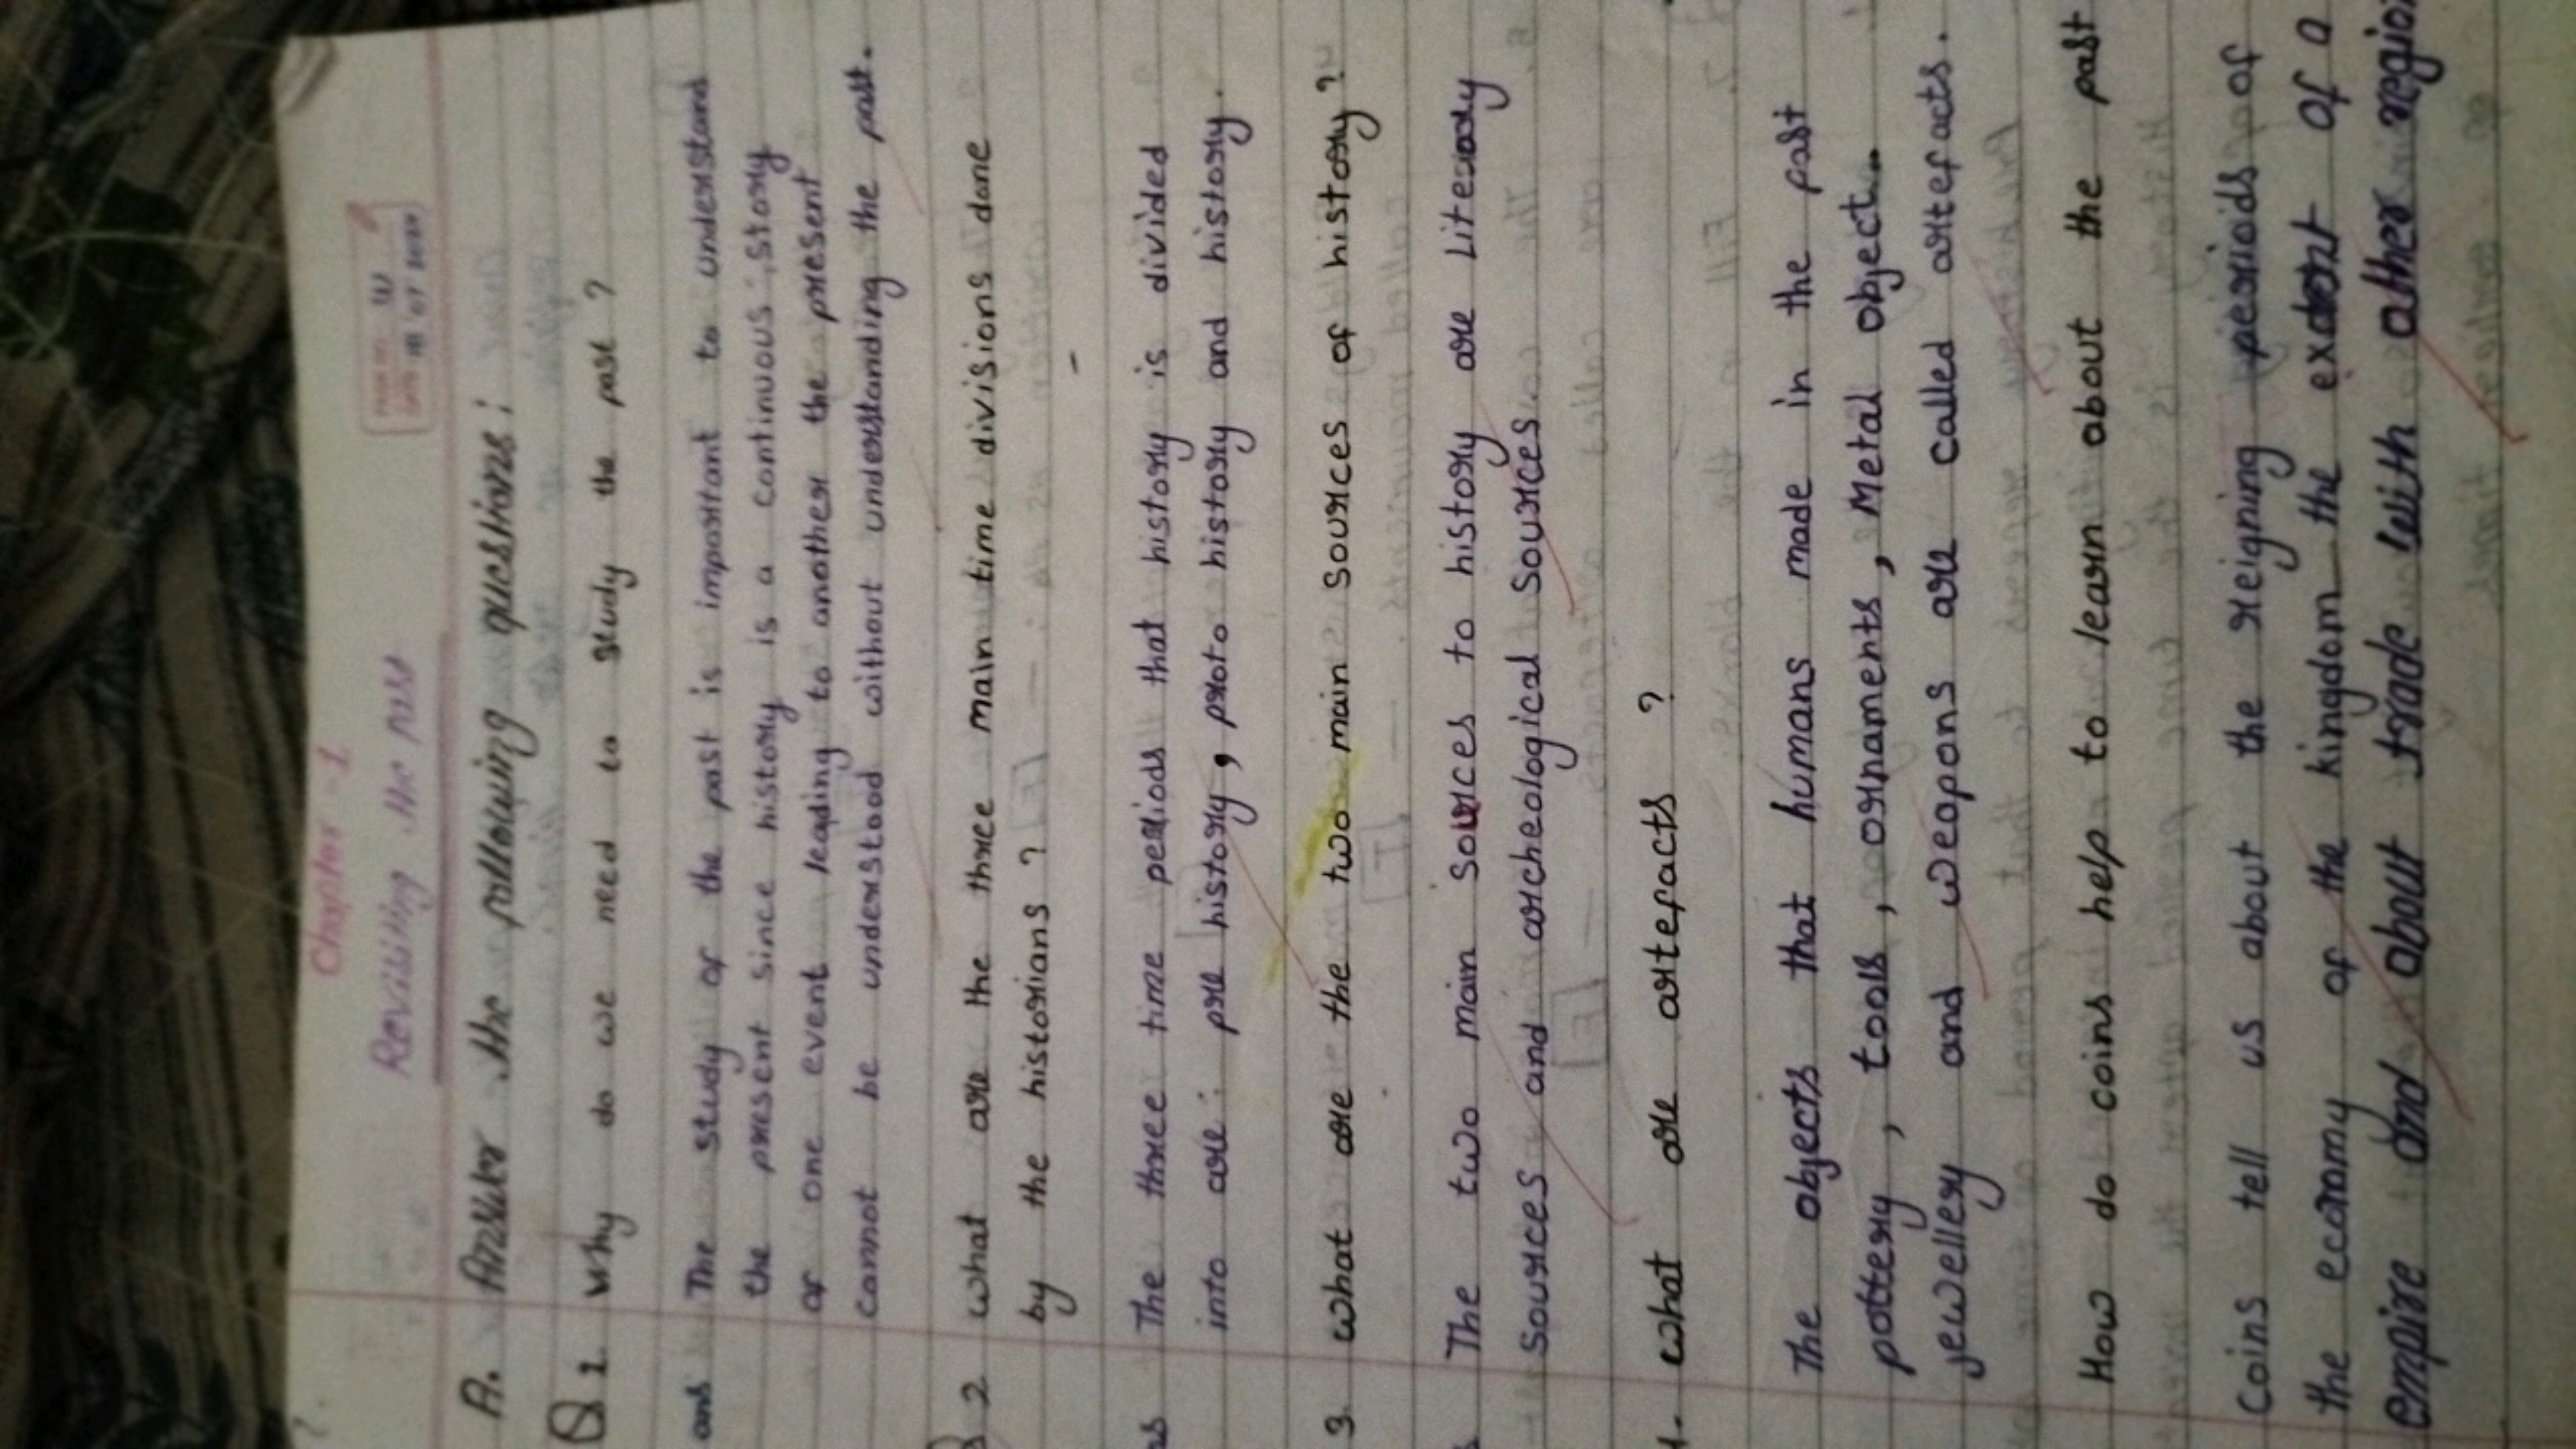 Chapter - 1
Revisiting the Past
A. Answer the following questions:
Q 1 Why do we need to study the past ?
ans The study of the past is important to understand
the present since history is a continuous story
of one event leading to another the present
cannot be understood without understanding the past.
2 what are the three main time divisions done
by the historians ?
The three time periods that history is divided
into are : pre history, proto history and history.
3 what are the two main sources of history ?
The two main sources to history are Literary
sources and archeological sources
4. what are artefacts ?
The objects that humans made in the past
pottery, tools, ornaments, Metal object..
jewellery and weapons are called artefacts.
How do coins help to learn about the past
Coins tell us about the reigning periods of
the economy of the kingdom the extent of a
empire and about trade with other region